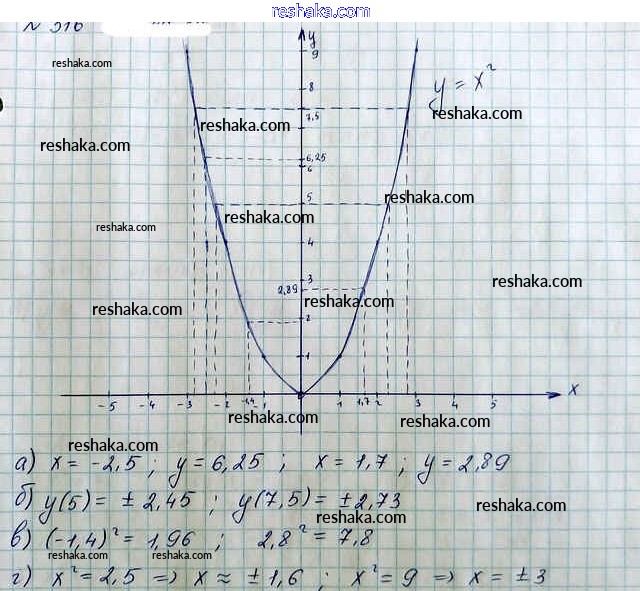 reshaka.com
N 516
y
9
y = x²
reshaka.com
8
7,5
reshaka.com
reshaka.com
reshaka.com
6,25
6
5
reshaka.com
reshaka.com
reshaka.com
4
3
2,89
reshaka.com
reshaka.com
reshaka.com
2
1
-5 -4 -3 -2 -1,4 -1 1 1,7 2 3 4 5 x
reshaka.com
reshaka.com
reshaka.com
а) x = -2,5 ; y = 6,25 ; x = 1,7 ; y = 2,89
б) y(5) = ± 2,45 ; y(7,5) = ± 2,73
reshaka.com
reshaka.com
reshaka.com
в) (-1,4)² = 1,96 ; 2,8² = 7,8
reshaka.com
reshaka.com
г) x² = 2,5 => x ≈ ± 1,6 ; x² = 9 => x = ± 3
reshaka.com